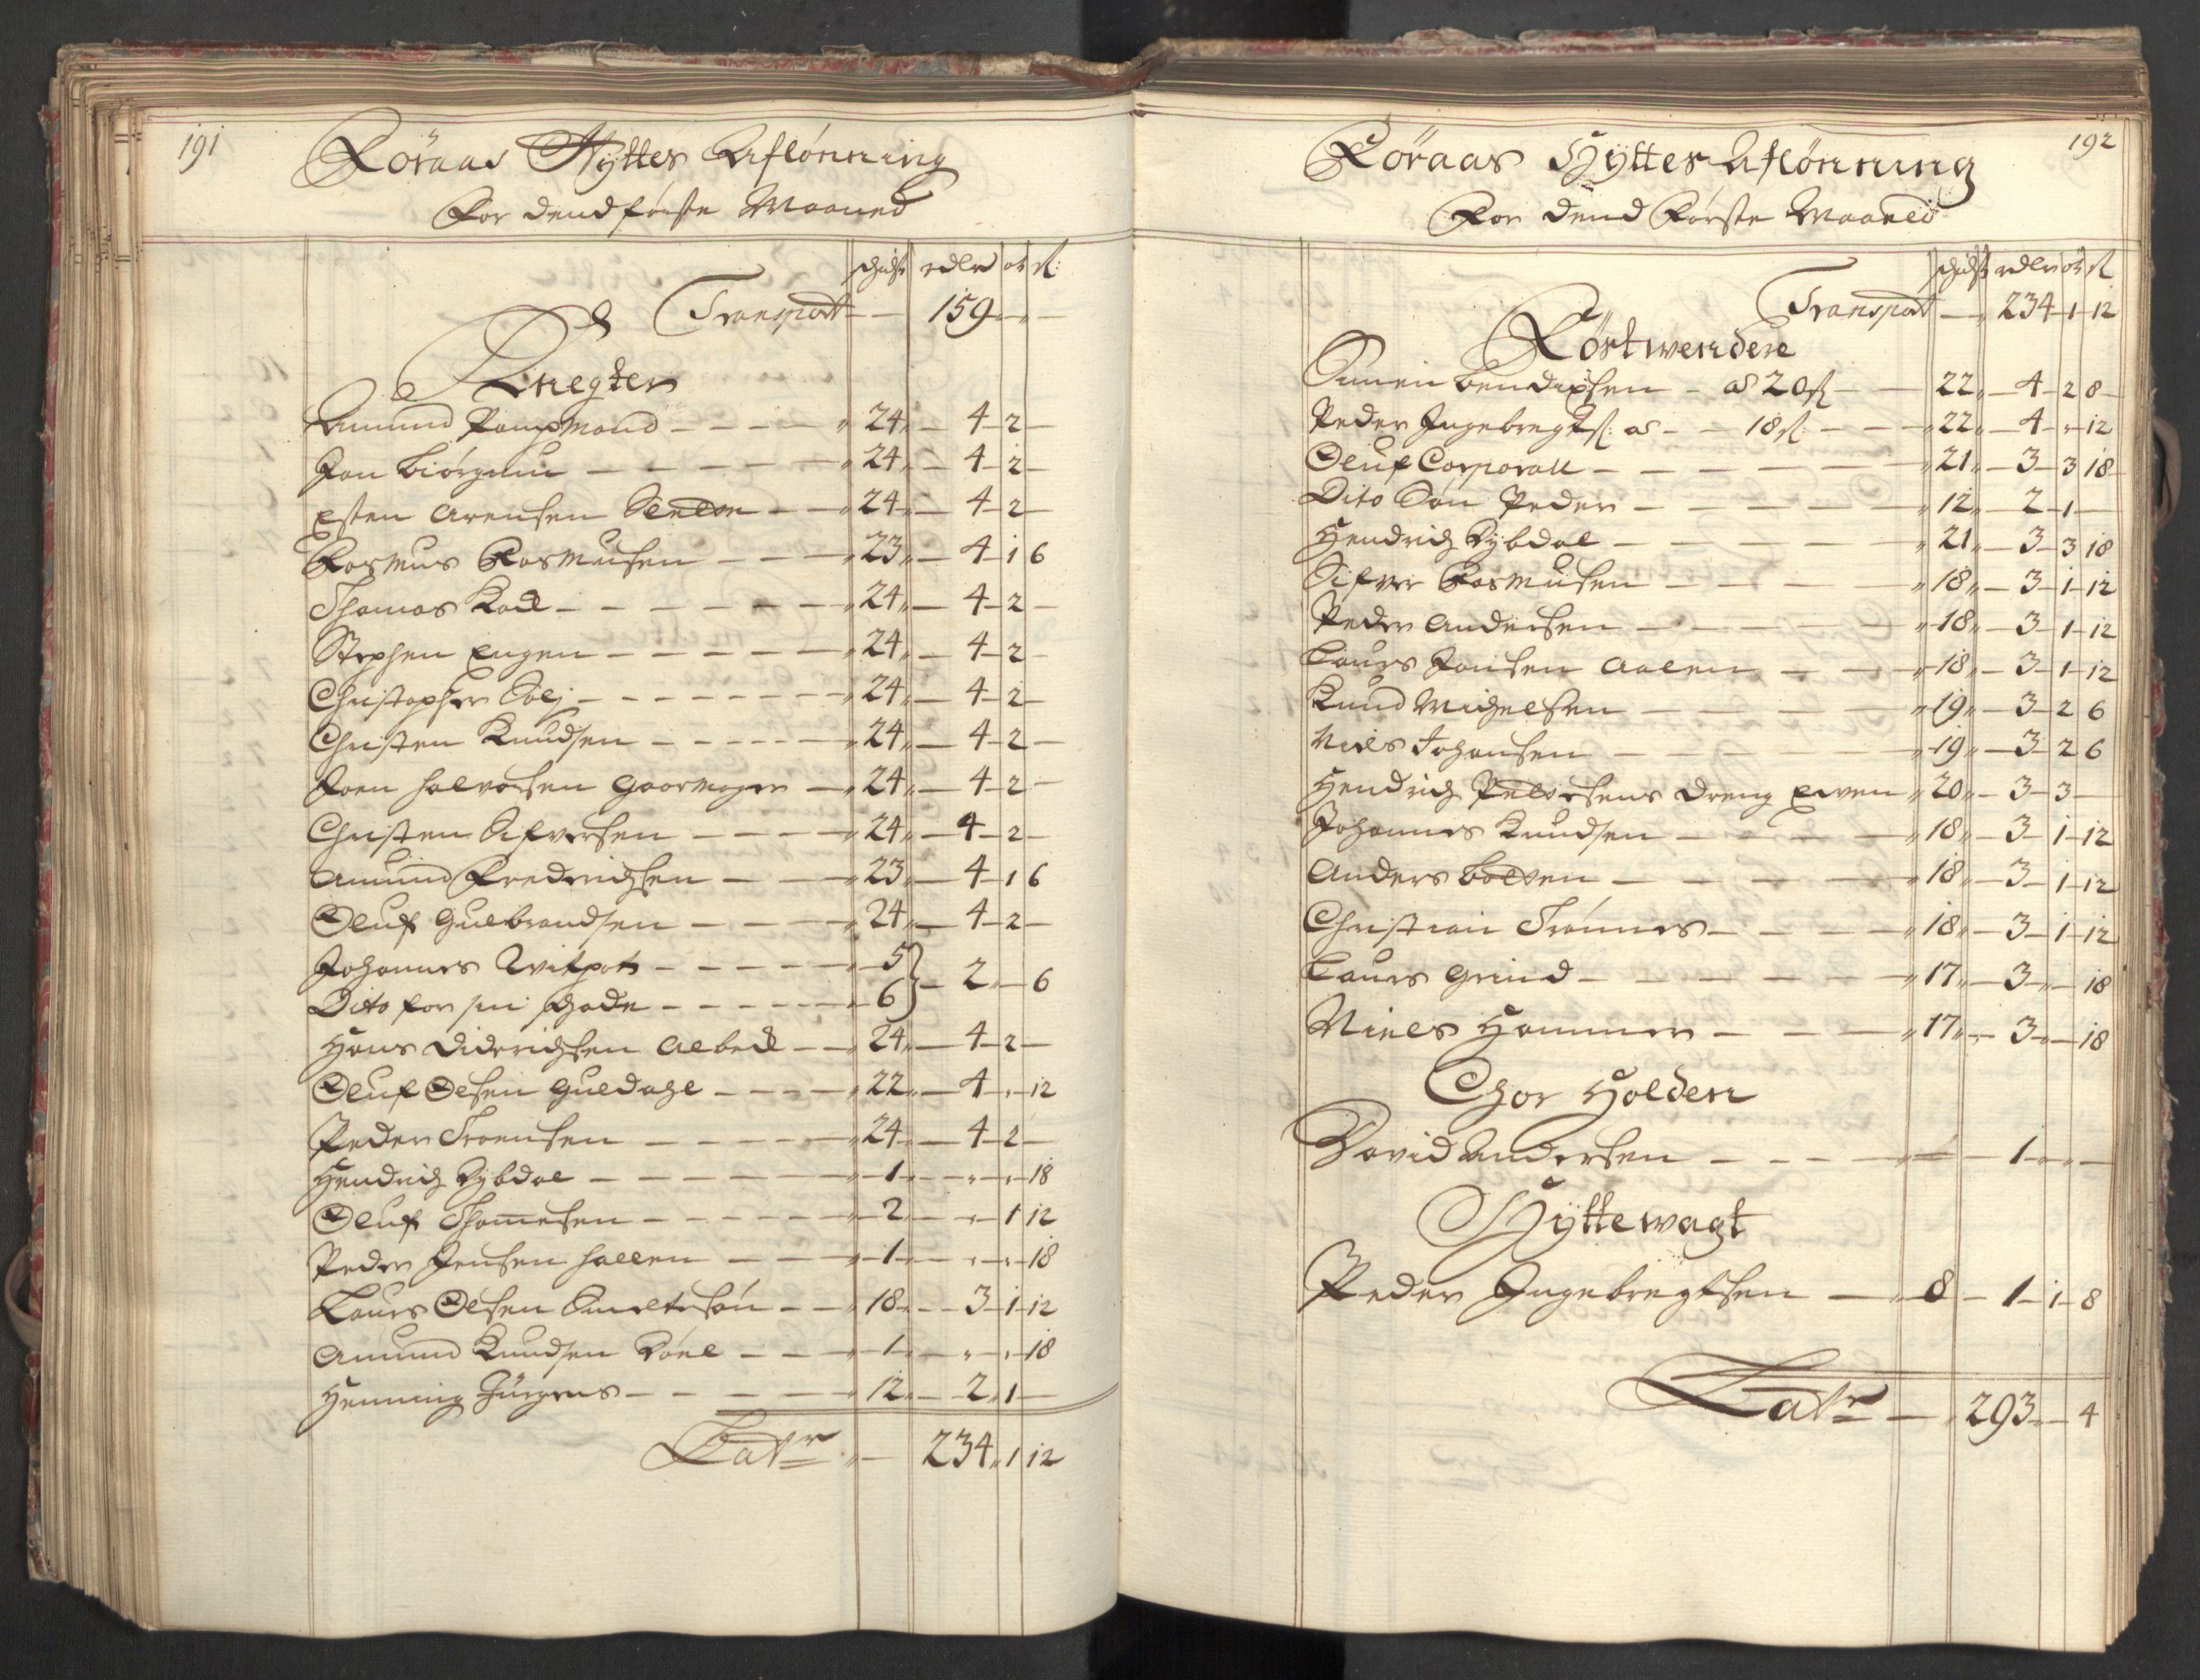 191
Röraas Hyttes Aflönning
For dend förste Maaned
schicht rdlr ort sl:
Transport — 159 " —
Knegter
Amund — 24 — 4 — 2 —
Jon — 24 — 4 — 2 —
Esten Arensen — 24 — 4 — 2 —
Rasmus Rasmusen — 23 — 4 — 1 6
Thomas — 24 — 4 — 2 —
Stephen Engen — 24 — 4 — 2 —
Christopher — 24 — 4 — 2 —
Christen Knudsen — 24 — 4 — 2 —
Joen Halvorsen Gaarmager — 24 — 4 — 2 —
Christen Silversen — 24 — 4 — 2 —
Amund Fredrichsen — 23 — 4 — 1 6
Oluf Gulbrandsen — 24 — 4 — 2 —
Johannes — 5 } 2 " — 6
Dito for — 6
Hans Diderichsen — 24 — 4 — 2 —
Oluf Olsen Guldahl — 22 — 4 " — 12
Peder Troensen — 24 — 4 — 2 —
Hendrich Dybdal — 1 — " — " — 18
Oluf Thomesen — 2 — " — 1 12
Peder Jensen Hallen — 1 — " — " — 18
Laurs Olsen — 18 — 3 — 1 — 12
Amund Knudsen — 1 — " — " — 18
Henning Jürgens — 12 — 2 " 1 —
Latr — 234 " 1 12
192
Röraas Hyttes Aflönning
For dend Förste Maaned
schicht rdlr ort sl
Transport — 234 — 1 — 12
Röstwendere
Simen Bendixsen — a 20 sl — 22 — 4 — 2 8
Peder Ingebregts: a — 18 sl: — 22 — 4 — " — 12
Oluf Corporall — 21 — 3 — 3 18
Dito Søn Peder — 12 — 2 — 1 —
Hendrich Dybdal — 21 — 3 — 3 18
Sifver Rasmusen — 18 — 3 — 1 — 12
Peder Andersen — 18 — 3 — 1 — 12
Laurs Jonsen Aalen — 18 — 3 — 1 — 12
Knud Michelsen — 19 — 3 — 2 6
Niels Johansen — 19 — 3 2 6
Hendrich Pettersens Dreng Ewen " 20 — 3 — 3 —
Johannes Knudsen — 18 — 3 — 1 — 12
Anders Bolten — 18 — 3 — 1 — 12
Christian Trönnes — 18 — 3 — 1 — 12
Laurs Grind — 17 — 3 — " — 18
Niels Hammer — 17 — 3 — " — 18
Chor Holder
David Andersen — 1 — " —
Hyttewagt
Peder Ingebregtsen — 8 — 1 — 1 — 8
Latr — 293 " — 4